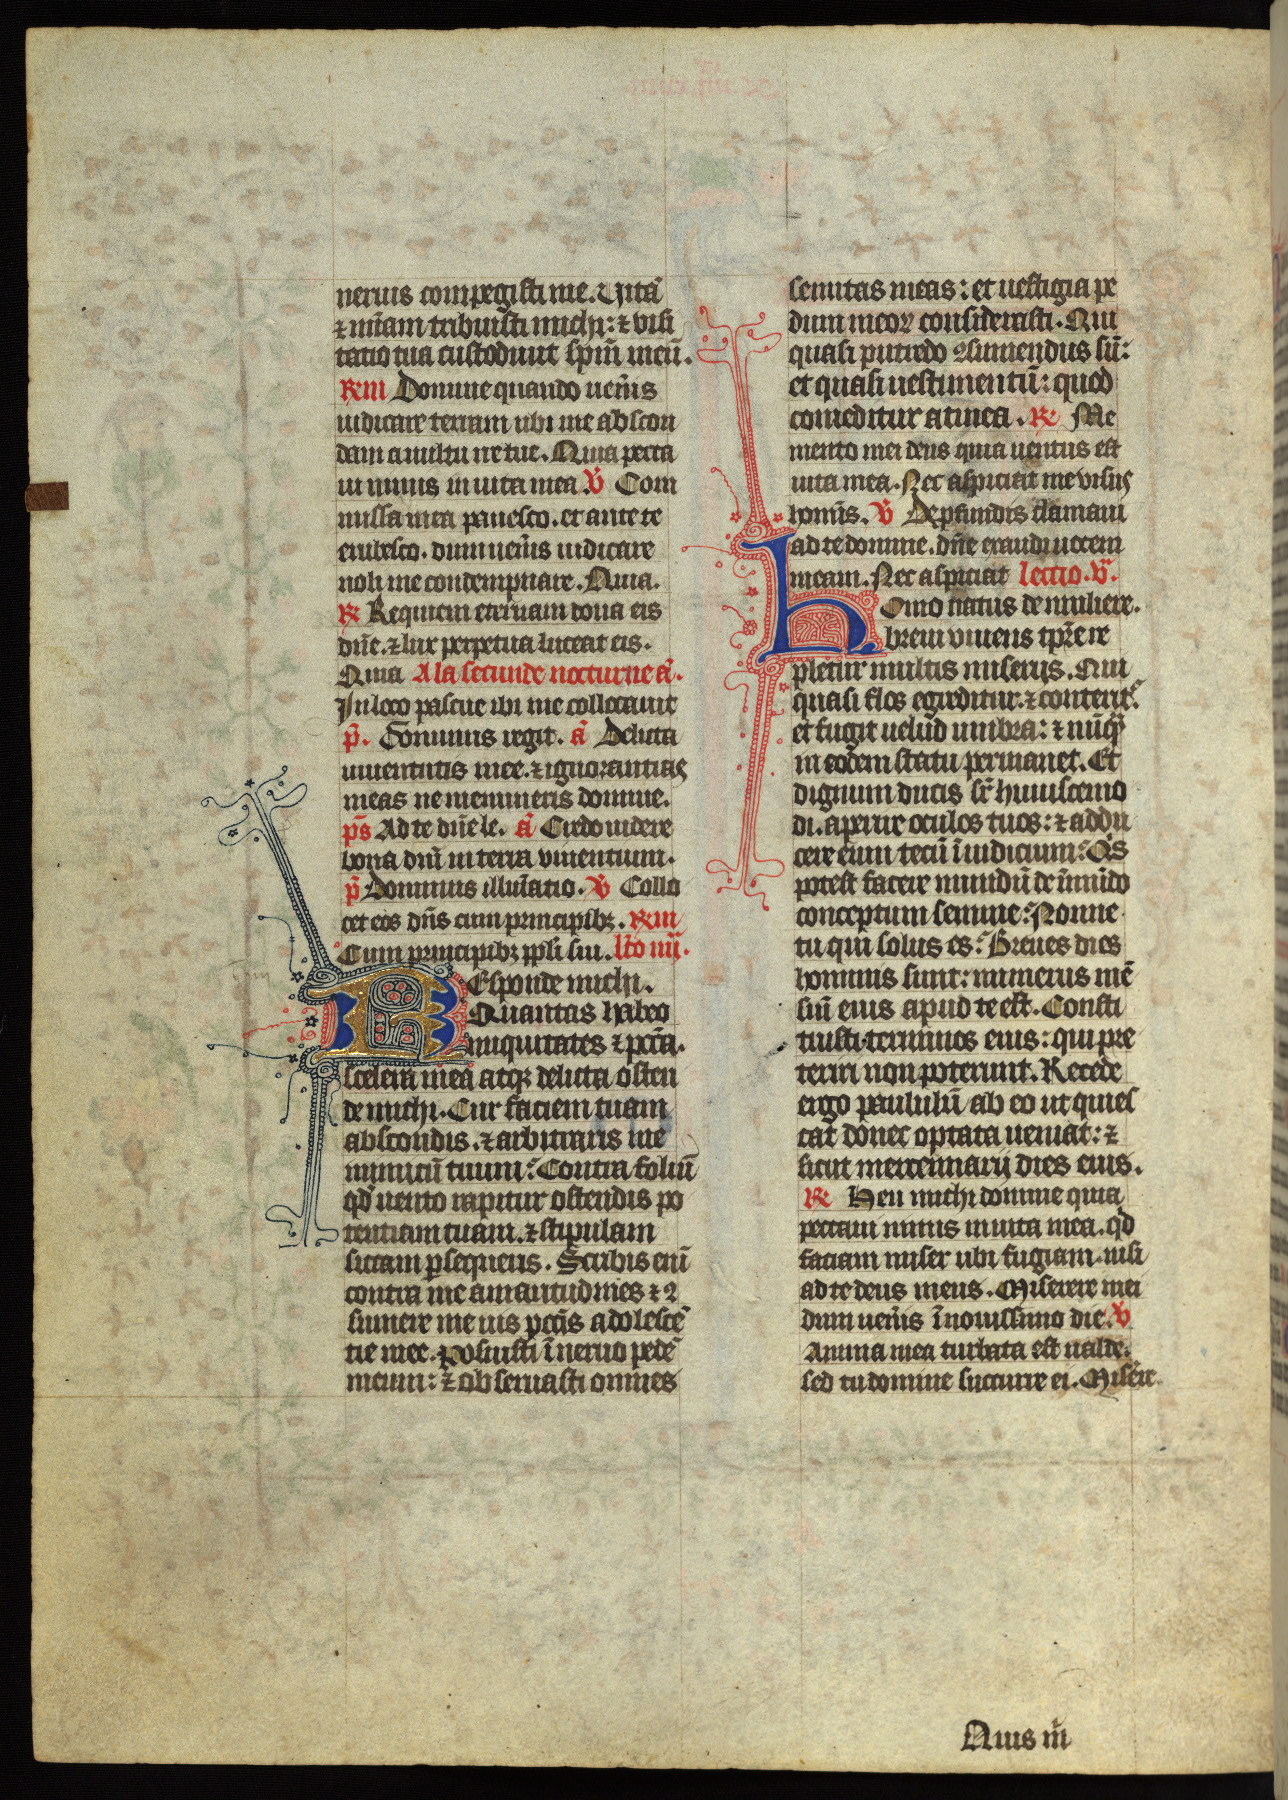 neruis compegisti me. Uitã
⁊ mĩam tribuisti michi: ⁊ visi
tatio tua custodiuit spm̃ meũ.
R̃ iii Domine quando uenis̃
iudicare terram ubi me abscon
dam a uultu ire tue. Quia pecca
ui nimis in uita mea ℣ Com
missa mea pauesco. et ante te
erubesco. dum uenis̃ iudicare
noli me condempnare. Quia.
R̃ Requiem eternam dona eis
dñe. ⁊ lux perpetua luceat eis.
Quia A la secunde nocturne ã.
In loco pascue ibi me collocauit
p̃. Dominus regit. ã Delicta
iuuentutis mee. ⁊ ignorantias
meas ne memineris domine.
p̃s Ad te dñe le. ã Credo uidere
bona dñi in terra viuentium.
p̃ Dominus illuĩatio. ℣ Collo
cet eos dñs cum principibꝫ. R̃ iii
Cum principibꝫ ppl̃i sui. lc̃o iiii.
Responde michi.
Quantas habeo
iniquitates ⁊ pcc̃a.
scelera mea atqꝫ delicta osten
de michi. Cur faciem tuam
abscondis. ⁊ arbitraris me
inimicũ tuum: Contra foliũ
qd̃ uento rapitur ostendis po
tentiam tuam. ⁊ stipulam
siccam ꝑsequeris. Scribis eni᷈
contra me amaritudines ⁊ ꝯ
sumere me uis pcc̃is adolescẽ
tie mee. Posuisti ĩ neruo pedẽ
meum: ⁊ obseruasti omnes
semitas meas: et uestigia pe
dum meoꝝ considerasti. Qui
quasi putredo ꝯsumendus sũ:
et quasi uestimentũ: quod
comeditur a tinea. R̃ Me
mento mei deus quia uentus est
uita mea. Nec aspiciat me visus
homis̃. ℣ De ꝓfundis clamaui
ad te domine. dñe exaudi uocem
meam. Nec aspiciat lectio. v̾.
homo natus de muliere.
breui viuens tpr̃e re
pletur multis miseriis. Qui
quasi flos egreditur. ⁊ conterit᷑.
et fugit uelud umbra: ⁊ nũqᷓ
in eodem statu permanet. Et
dignum ducis sr̃ huiuscemo
di. aperire oculos tuos: ⁊ addu
cere eum tecũ ĩ iudicium: Qˢ
potest facere mundũ de ĩmũdo
conceptum semine: Nonne
tu qui solus es: Breues dies
hominis sunt: numerus mẽ
siũ eius apud te est. Consti
tuisti terminos eius: qui pre
teriri non poterunt. Recede
ergo paululũ ab eo ut quies
cat donec optata ueniat: ⁊
sicut mercennarij dies eius.
R̃ Heu michi domine quia
peccaui nimis in uita mea. qd̃
faciam miser ubi fugiam. nisi
ad te deus meus. Miserere mei
dum uenis̃ ĩ nouissimo die. ℣
Anima mea turbata est ualde.
sed tu domine succurre ei. Misẽre